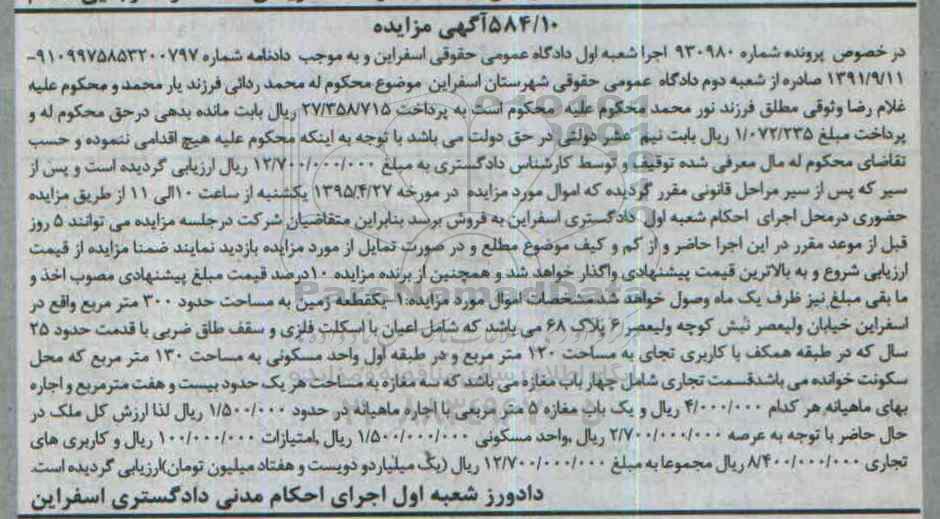 ۵۸۴/۱۰آگهی مزایده
در خصوص پرونده شماره ۹۳۰۹۸۰ اجرا شعبه اول دادگاه عمومی حقوقی اسفراین و به موجب دادنامه شماره ۹۱۰۹۹۷۵۸۵۳۲۰۰۷۹۷-
۱۳۹۱/۹/۱۱ صادره از شعبه دوم دادگاه عمومی حقوقی شهرستان اسفراین موضوع محکوم له محمد ردائی فرزند یار محمد و محکوم علیه
غلام رضا وثوقی مطلق فرزند نور محمد محکوم علیه محکوم است به پرداخت ۲۷/۳۵۸/۷۱۵ ریال بابت مانده بدهی درحق محکوم له و
پرداخت مبلغ ۱/۰۷۲/۲۳۵ ریال بابت نیم عشر دولتی در حق دولت می باشد با توجه به اینکه محکوم علیه هیچ اقدامی ننموده و حسب
تقاضای محکوم له مال معرفی شده توقیف و توسط کارشناس دادگستری به مبلغ ۱۲/۷۰۰/۰۰۰/۰۰۰ ریال ارزیابی گردیده است و پس از
سیر که پس از سیر مراحل قانونی مقرر گردیده که اموال مورد مزایده در مورخه ۱۳۹۵/۴/۲۷ یکشنبه از ساعت ۱۰الی ۱۱ از طریق مزایده
حضوری درمحل اجرای احکام شعبه اول دادگستری اسفراین به فروش برسد بنابراین متقاضیان شرکت درجلسه مزایده می توانند ۵ روز
قبل از موعد مقرر در این اجرا حاضر و از کم و کیف موضوع مطلع و در صورت تمایل از مورد مزایده بازدید نمایند ضمنا مزایده از قیمت
ارزیابی شروع و به بالاترین قیمت پیشنهادی واگذار خواهد شد و همچنین از برنده مزایده ۱۰درصد قیمت مبلغ پیشنهادی مصوب اخذ و
ما بقی مبلغ نیز ظرف یک ماه وصول خواهد شد.مشخصات اموال مورد مزایده:۱-یکقطعه زمین به مساحت حدود ۳۰۰ متر مربع واقع در
اسفراین خیابان ولیعصر نبش کوچه ولیعصر۶ پلاک ۶۸ می باشد که شامل اعیان با اسکلت فلزی و سقف طاق ضربی با قدمت حدود ۲۵
سال که در طبقه همکف با کاربری تجای به مساحت ۱۲۰ متر مربع و در طبقه اول واحد مسکونی به مساحت ۱۳۰ متر مربع که محل
سکونت خوانده می باشدقسمت تجاری شامل چهار باب مغازه می باشد که سه مغازه به مساحت هر یک حدود بیست و هفت مترمربع و اجاره
بهای ماهیانه هر کدام ۴/۰۰۰/۰۰۰ ریال و یک باب مغازه ۵ متر مربعی با اجاره ماهیانه در حدود ۱/۵۰۰/۰۰۰ ریال لذا ارزش کل ملک در
حال حاضر با توجه به عرصه ۲/۷۰۰/۰۰۰/۰۰۰ ریال ،واحد مسکونی ۱/۵۰۰/۰۰۰/۰۰۰ ریال ،امتیازات ۱۰۰/۰۰۰/۰۰۰ ریال و کاربری های
تجاری ۸/۴۰۰/۰۰۰/۰۰۰ ریال مجموعا به مبلغ ۱۲/۷۰۰/۰۰۰/۰۰۰ ریال (یک میلیاردو دویست و هفتاد میلیون تومان)ارزیابی گردیده است.
دادورز شعبه اول اجرای احکام مدنی دادگستری اسفراین
ParsNamadData